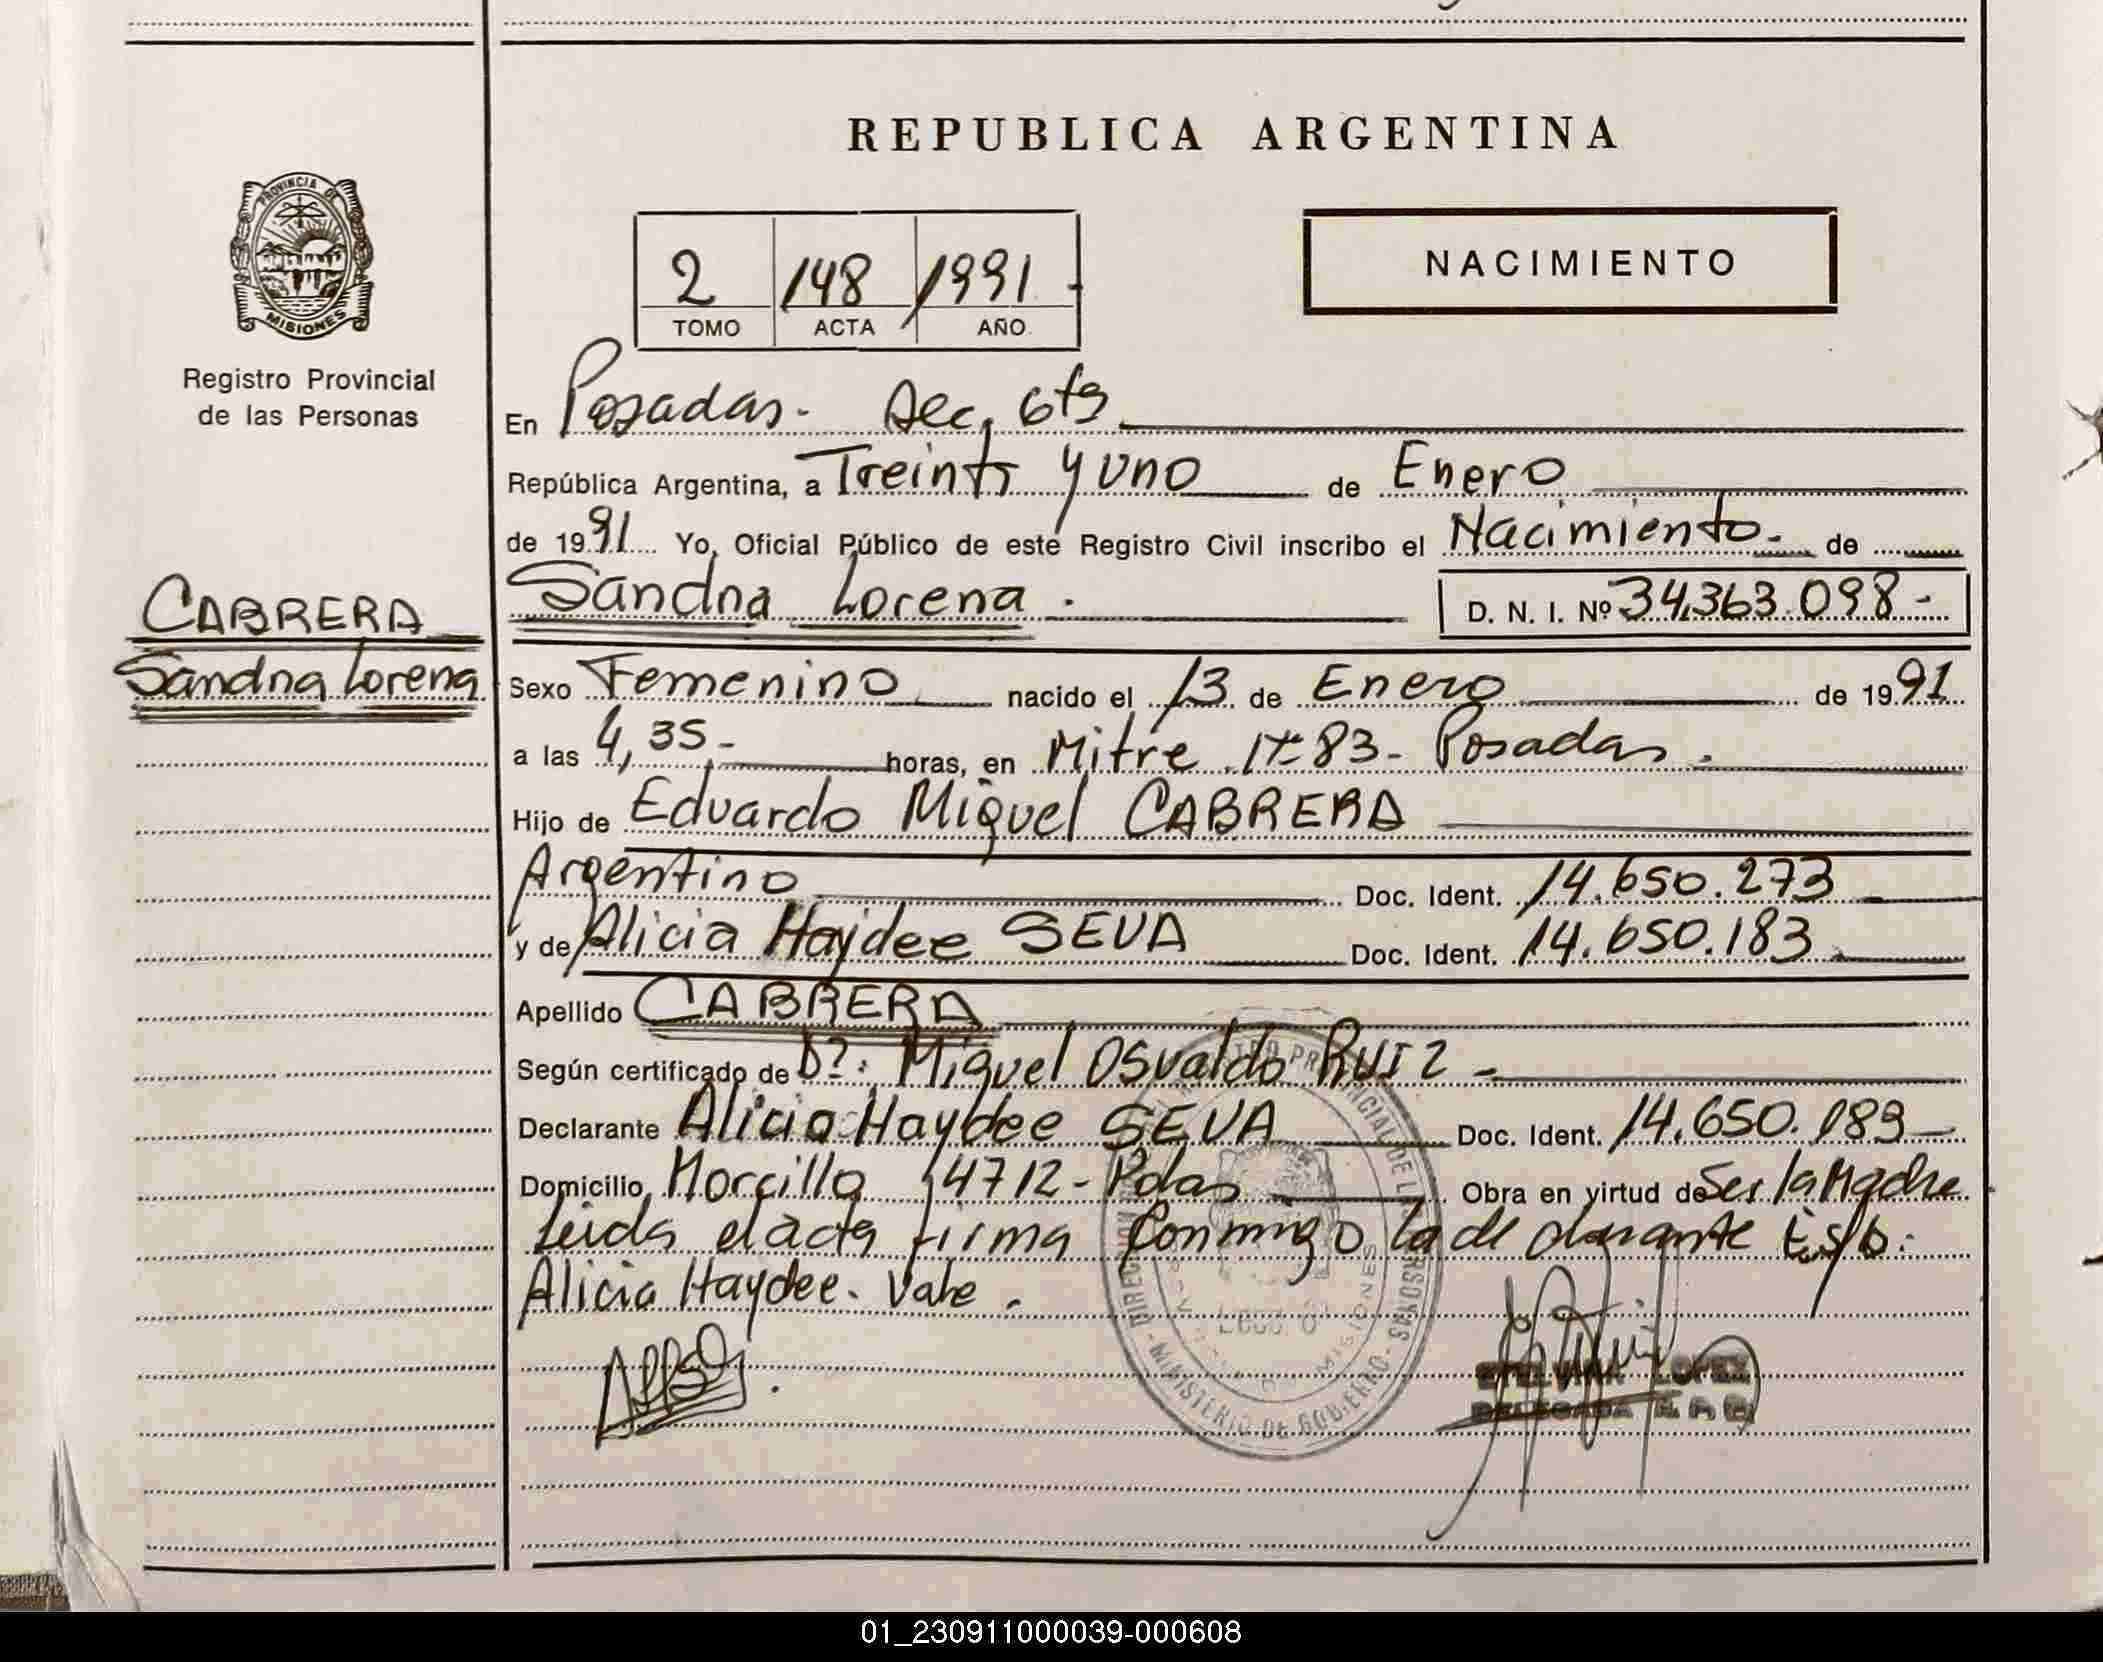 REPUBLICA ARGENTINA
PROVINCIA DE
MISIONES
Registro Provincial
de las Personas
NACIMIENTO
2 148 1991
TOMO ACTA AÑO
En Posadas. Sec. 6ta
República Argentina, a Treinta y uno de Enero
de 1991 Yo, Oficial Público de este Registro Civil inscribo el Nacimiento. de
CABRERA
Sandra Lorena
Sandra Lorena. D. N. I. Nº 34.363.098-
Sexo Femenino nacido el 13 de Enero de 1991
a las 4,35- horas, en Mitre 83- Posadas.
Hijo de Eduardo Miguel CABRERA
Argentino Doc. Ident. 14.650.273
y de Alicia Haydee SEVA Doc. Ident. 14.650.183
Apellido CABRERA
Según certificado de Miguel Osvaldo RUIZ-
Declarante Alicia Haydee SEVA Doc. Ident. 14.650.183-
Domicilio 4712- Pdas Obra en virtud de Ser la Madre
Leida el acta firma conmigo la declarante E.S/b:
Alicia Haydee. Vale.
LOPEZ
DELEGADA
MINISTERIO DE GOBIERNO
01_230911000039-000608